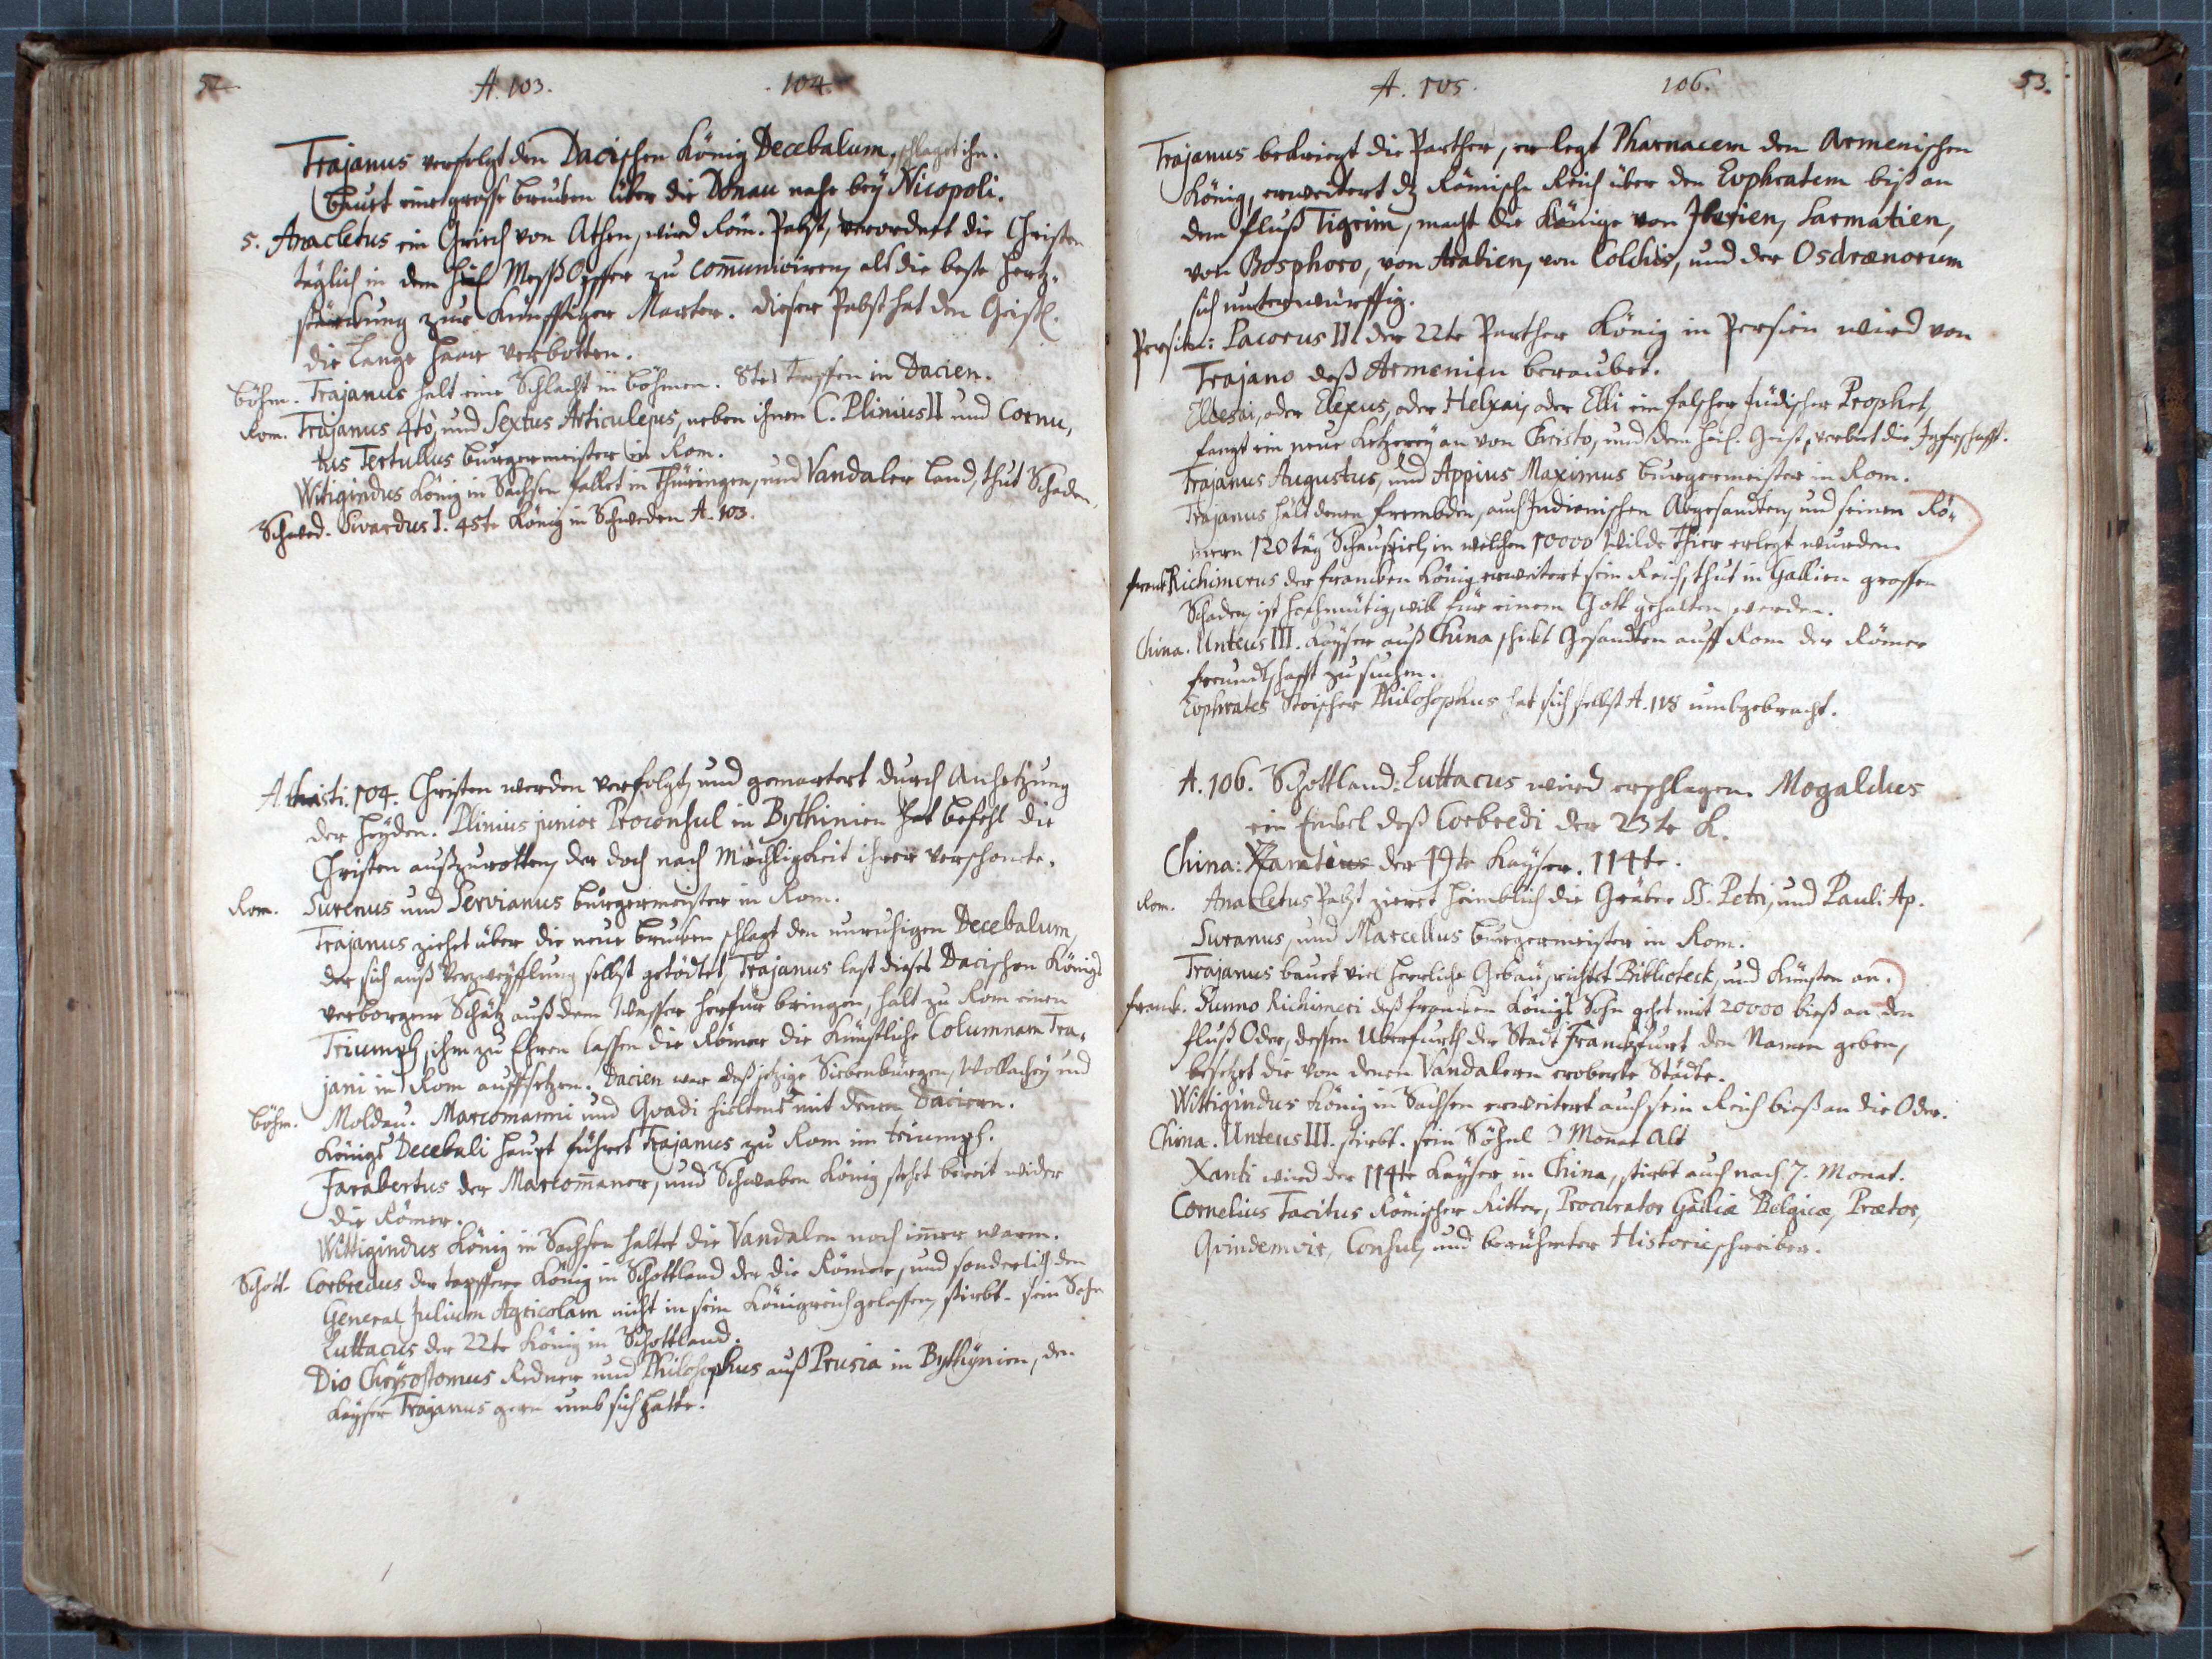 52 A. 103. 104.
Trajanus verfolgt den Dacischen König Decebalum, schlaget ihn.
bauet eine grosse brucken über die Donau nahe bey Nicopoli.
5. Anacletus ein Griech von Athen, wird Röm. Pabst, verordnet die Christen
täglich in dem heil MessOpffer zu com̄uniciren, als die beste Hertz-
stärckung zur künfftiger Marter. dieser Pabst hat den Geistl.
die lange haar verbotten.
böhm. Trajanus halt eine Schlacht in böhmen. 8tes treffen in Dacien.
Rom. Trajanus 4to, und Sextus Articulejus, neben ihnen C. Plinius II und Cornu,
tus Tertullus burgermeister in Rom.
Witigindus König in Sachsen fallet in Thüringen, und Vandaler land, thut Schaden,
Schwed. Sivardus I. 45te König in Schweden A. 103.
A. Christi. 104. Christen werden verfolgt, und gemartert durch anhetzung
der heyden. Plinius junior Proconsul in Bythinien hat befehl die
Christen auszurotten, der doch nach Möchligkeit ihrer verschonete.
Rom. Surenus und Servianus burgermeister in Rom.
Trajanus ziehet über die neue brucken schlagt den unruhigen Decebalum,
der sich auß verzweyfflung selbst getödtet, Trajanus last dieses Dacischen Königs
verborgene Schätz auß dem Wasser herfür bringen, halt zu Rom einen
Triumph, ihm zu Ehren lassen die Römer die künstliche Columnam Tra-
jani in Rom auffsetzen. Dacien war das jetzige Siebenbürgen, Wollachey und
böhm. Moldau. Marcomanni und Qvadi hieltens mit denen Daciern.
Königs Decebali haupt führet Trajanus zu Rom im triumph.
Farabertus der Marcom̄aner, und Schwaben König stehet bereit wider
die Römer.
Wittigindus König in Sachsen haltet die Vandalen noch im̄er warm.
Schott. Corbredus der tapffere König in Schottland der die Römer, und sonderlich den
General Julium Agricolam nicht in sein Königreich gelassen, stirbt. sein Sohn
Luttacus der 22te König in Schottland.
Dio Chrysostomus Redner und Philosophus auß Prusia in Bythynien, den
Kayser Trajanus gern umb sich hatte.
A. 105. 106. 53.
Trajanus bekriegt die Parther, erlegt Pharnacem den Armenischen
König, erweitert dz Römische Reich über den Euphratem biß an
dem fluß Tigrim, macht die Könige von Iberien, Sarmatien,
von Bosphoro, von Arabien, von Colchis, und der Osdrœnorum
sich unterwürffig.
Persien: Pacorus II der 22te Parther König in Persien wird von
Trajano deß Armenien beraubet.
Elcesai, oder Elexus, oder Helxai, oder Elli ein falscher Jüdischer Prophet,
fangt ein neue Ketzerey an von Christo, und dem heil. Geist, verbiet die Jgfrschafft.
Trajanus Augustus, und Appius Maximus burgermeister in Rom.
Trajanus hält denen frembden, auch Indianischen Abgesandten, und seinen Rö-
mern 120 täg Schauspiel, in welchen 10000 Wilde thier erlegt wurden.
franck Richimerus der francken König erweitert sein Reich, thut in Gallien grossen
Schaden, ist hochmütig, will für einem Gott gehalten werden.
China. Unteus III. Kayser auß China schickt Gesandten auff Rom der Römer
freundtschafft zu suchen.
Euphrates Stoischer Philosophus hat sich selbst A. 118 umbgebracht.
A. 106. Schottland: Luttacus wird erschlagen. Mogaldus
ein Enckel deß Corbredi der 23te K.
China: der 19te Kayser. 114te.
Rom. Anacletus Pabst zieret heimblich die Gräber SS. Petri, und Pauli Ap.
Suranus, und Marcellus burgermeister in Rom.
Trajanus bauet viel herrliche Gebäu, richtet Biblioteck, und Künsten an.
franck. Sunno Richimeri deß francken Königs Sohn gehet mit 20000 bieß an den
fluß Oder, dessen Uberfurth der Stadt Franckfurt den Namen geben,
besetzet die von denen Vandalern eroberte Städte.
Wittigindus König in Sachsen erweitert auch sein Reich bieß an die Oder.
China. Unteus III. stirbt. sein Söhnl 3 Monat Alt
Xanti wird der 114te Kayser in China, stirbt auch nach 7. Monat.
Cornelius Tacitus Römischer Ritter, Procurator Galliæ Belgicæ, Prætor,
Qvindemvir, Consul, und berühmter Historieschreiber.